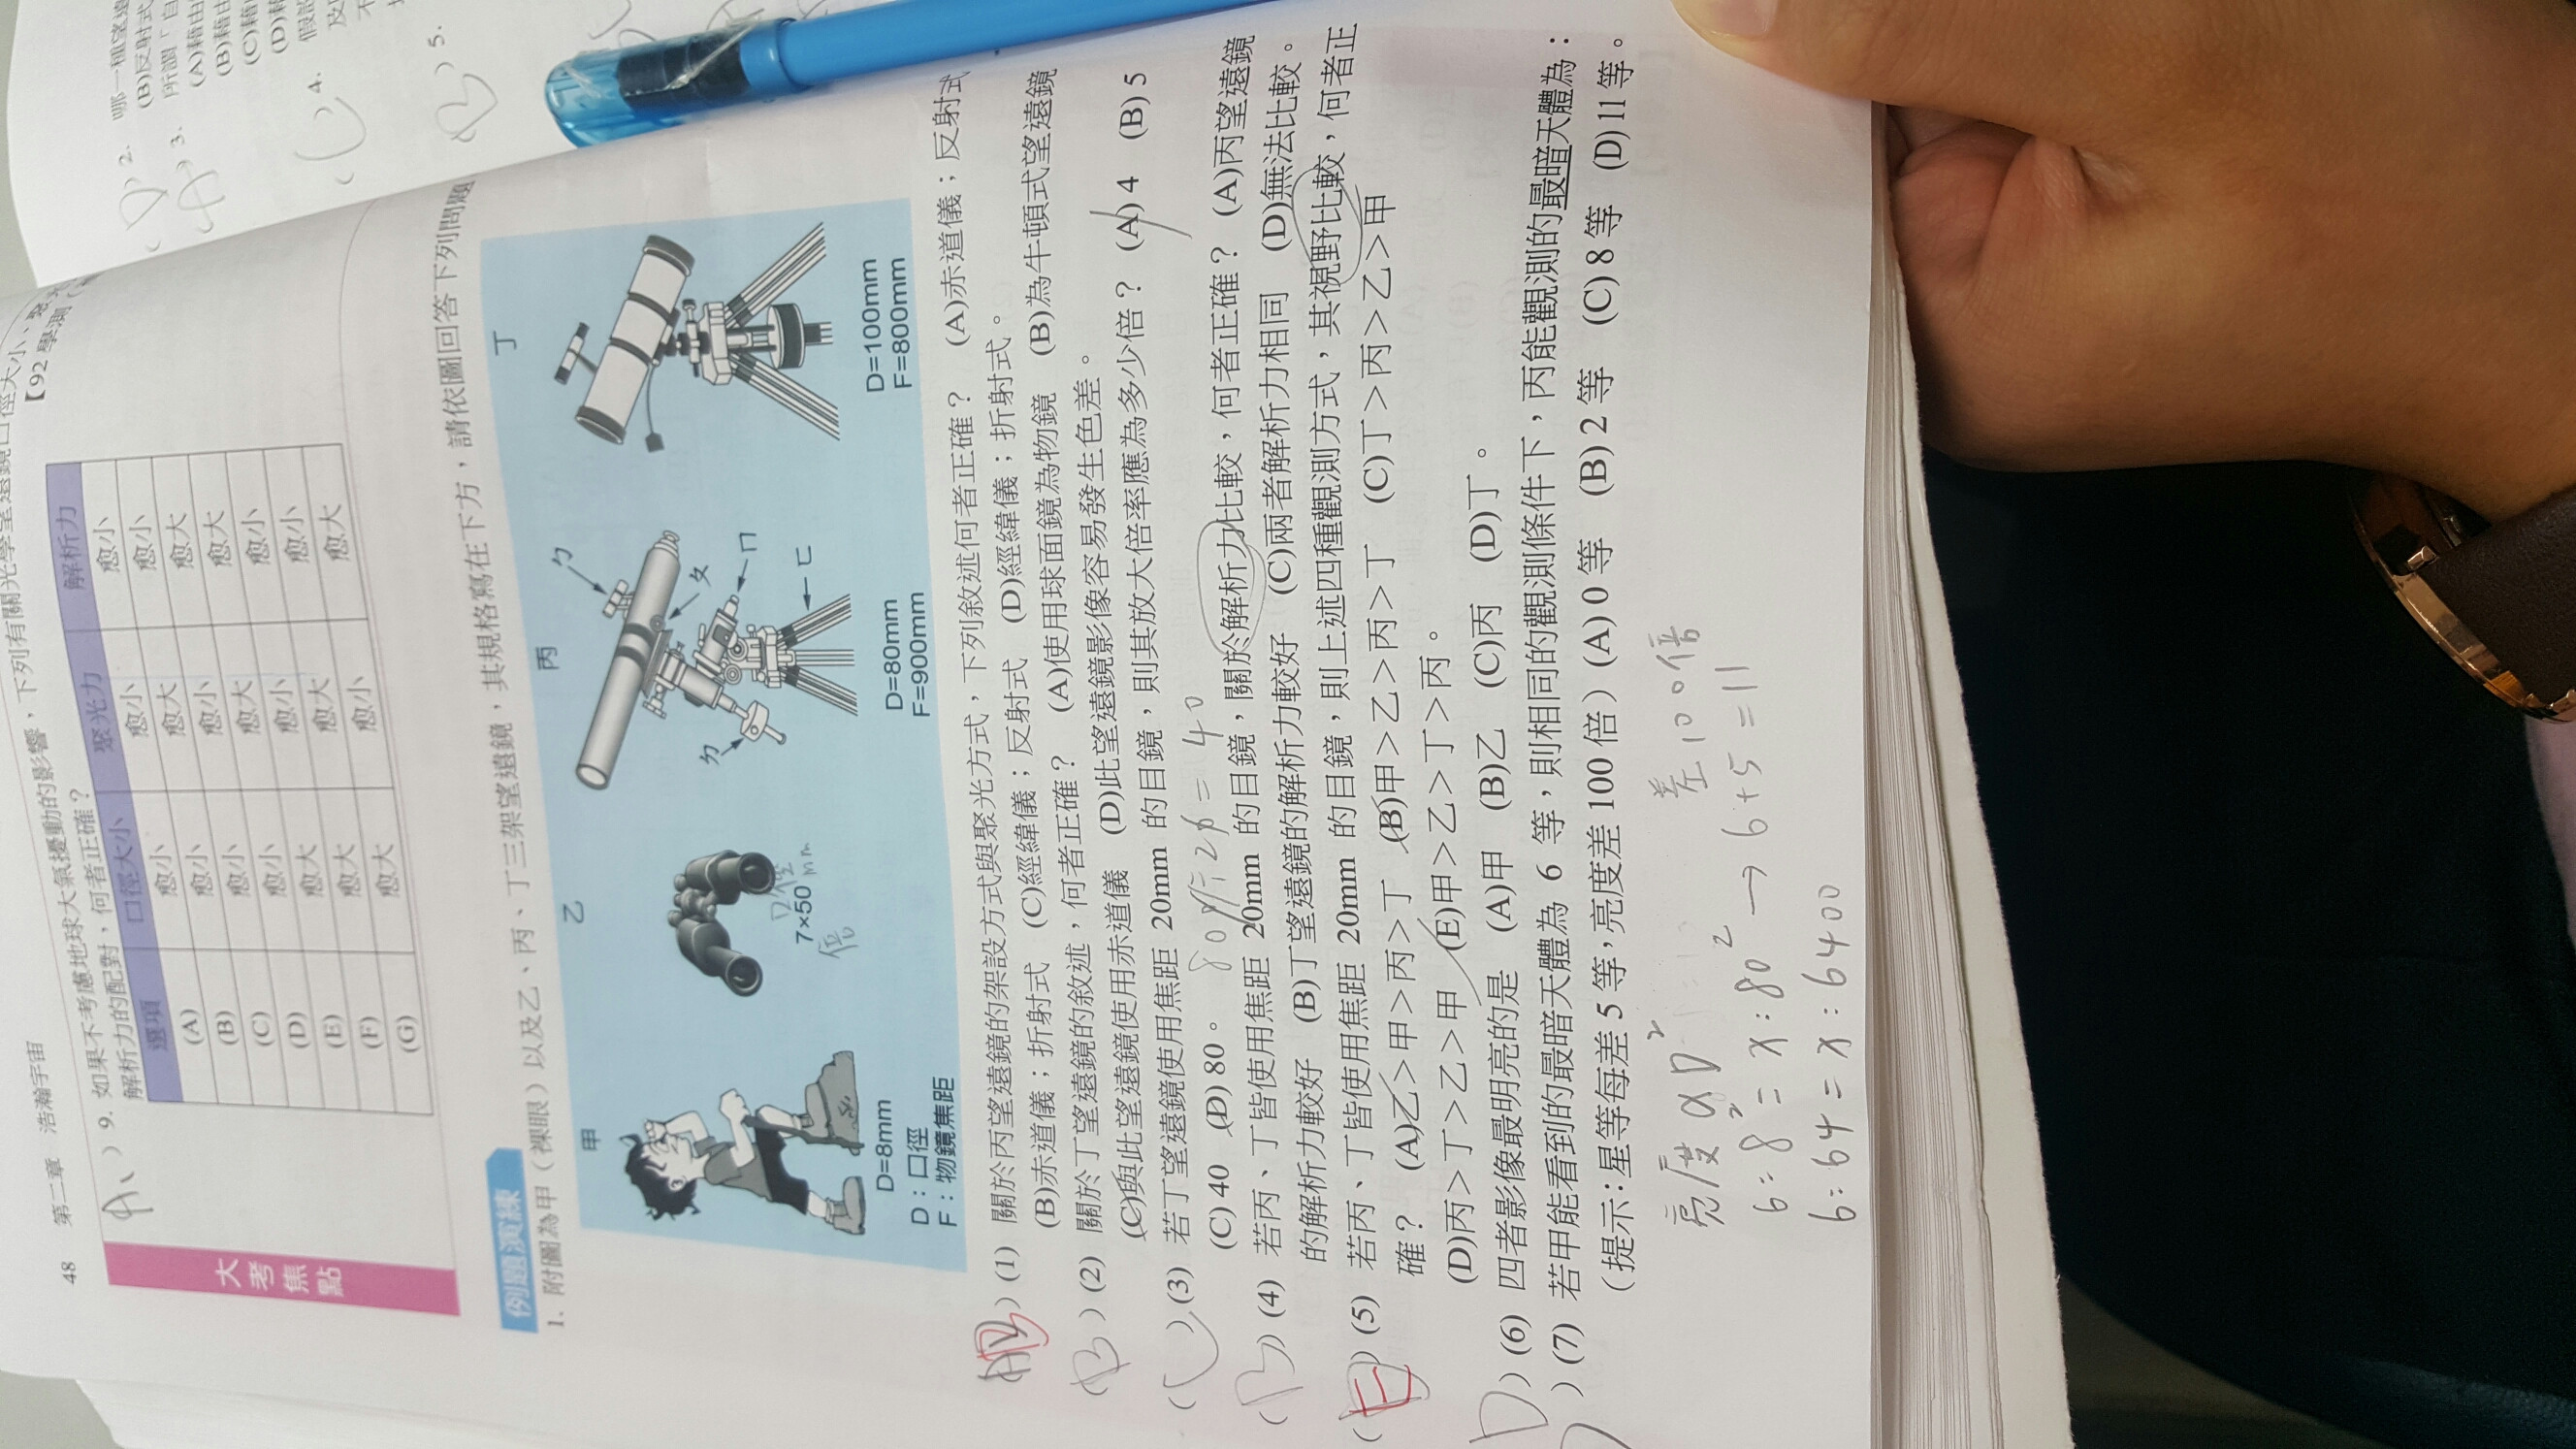 48 第二章 浩瀚宇宙
(A) 9. 如果不考慮地球大氣擾動的影響，下列有關光學望遠鏡口徑大小、聚光
解析力的配對，何者正確？ 【92 學測】
大考焦點
選項 口徑大小 聚光力 解析力
(A) 愈小 愈小 愈小
(B) 愈小 愈大 愈小
(C) 愈小 愈小 愈大
(D) 愈小 愈大 愈大
(E) 愈大 愈小 愈小
(F) 愈大 愈大 愈小
(G) 愈大 愈小 愈大
例題演練
1、附圖為甲（裸眼）以及乙、丙、丁三架望遠鏡，其規格寫在下方，請依圖回答下列問題
甲 乙 丙 丁
ㄅ
ㄆ
ㄇ
ㄈ
ㄉ
D=8mm
7×50 mm
倍
D=80mm
F=900mm
D=100mm
F=800mm
D：口徑
F：物鏡焦距
(B) (1) 關於丙望遠鏡的架設方式與聚光方式，下列敘述何者正確？ (A)赤道儀；反射式
(B)赤道儀；折射式 (C)經緯儀；反射式 (D)經緯儀；折射式。
(B) (2) 關於丁望遠鏡的敘述，何者正確？ (A)使用球面鏡為物鏡 (B)為牛頓式望遠鏡
(C)與此望遠鏡使用赤道儀 (D)此望遠鏡影像容易發生色差。
(C) (3) 若丁望遠鏡使用焦距 20mm 的目鏡，則其放大倍率應為多少倍？ (A) 4 (B) 5
(C) 40 (D) 80。
(B) (4) 若丙、丁皆使用焦距 20mm 的目鏡，關於解析力比較，何者正確？ (A)丙望遠鏡
的解析力較好 (B)丁望遠鏡的解析力較好 (C)兩者解析力相同 (D)無法比較。
(E) (5) 若丙、丁皆使用焦距 20mm 的目鏡，則上述四種觀測方式，其視野比較，何者正
確？ (A)乙＞甲＞丙＞丁 (B)甲＞乙＞丙＞丁 (C)丁＞丙＞乙＞甲
(D)丙＞丁＞乙＞甲 (E)甲＞乙＞丁＞丙。
(D) (6) 四者影像最明亮的是 (A)甲 (B)乙 (C)丙 (D)丁。
) (7) 若甲能看到的最暗天體為 6 等，則相同的觀測條件下，丙能觀測的最暗天體為：
（提示：星等每差 5 等，亮度差 100 倍）(A) 0 等 (B) 2 等 (C) 8 等 (D) 11 等。
亮度 α D²
差 100 倍
6 : 8² = x : 80² → 6+5 = 11
6 : 64 = x : 6400
(D) 2. 哪一種望遠
(B)反射式
(A) 3. 所謂「自
(A)藉由
(B)藉由
(C)藉
(D)藉
(C) 4. 假設
及
(B) 5.